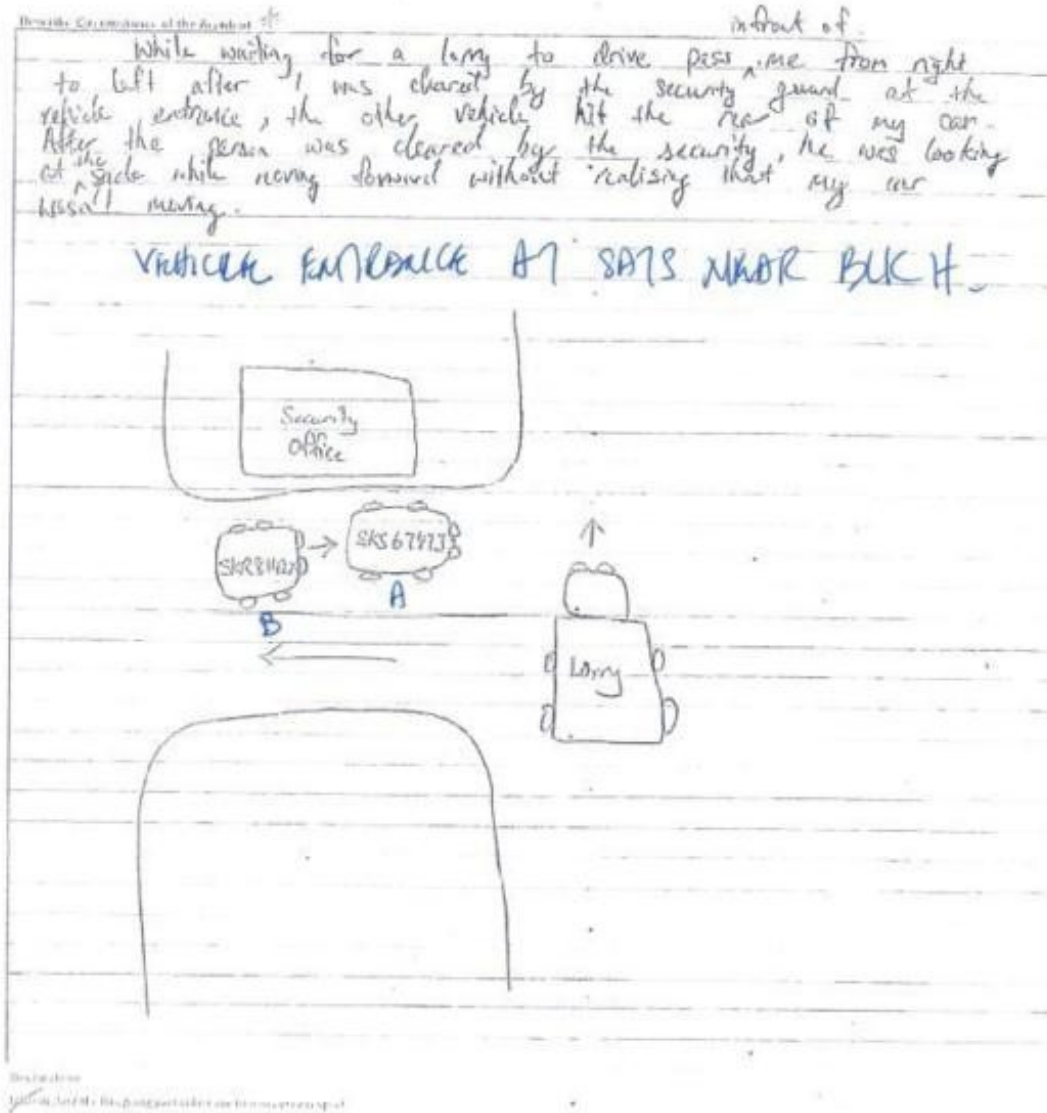 Describe Circumstances of the Accident *
infront of
While waiting for a lorry to drive pass ^ me from right
to left after I was cleared by the security guard at the
vehicle entrance, the other vehicle hit the rear of my car.
After the person was cleared by the security, he was looking
at ^the side while moving forward without realising that my car
wasn't moving.
VEHICLE ENTRANCE AT SATS NEAR BLK H.
Security
Office
A
B
Lorry